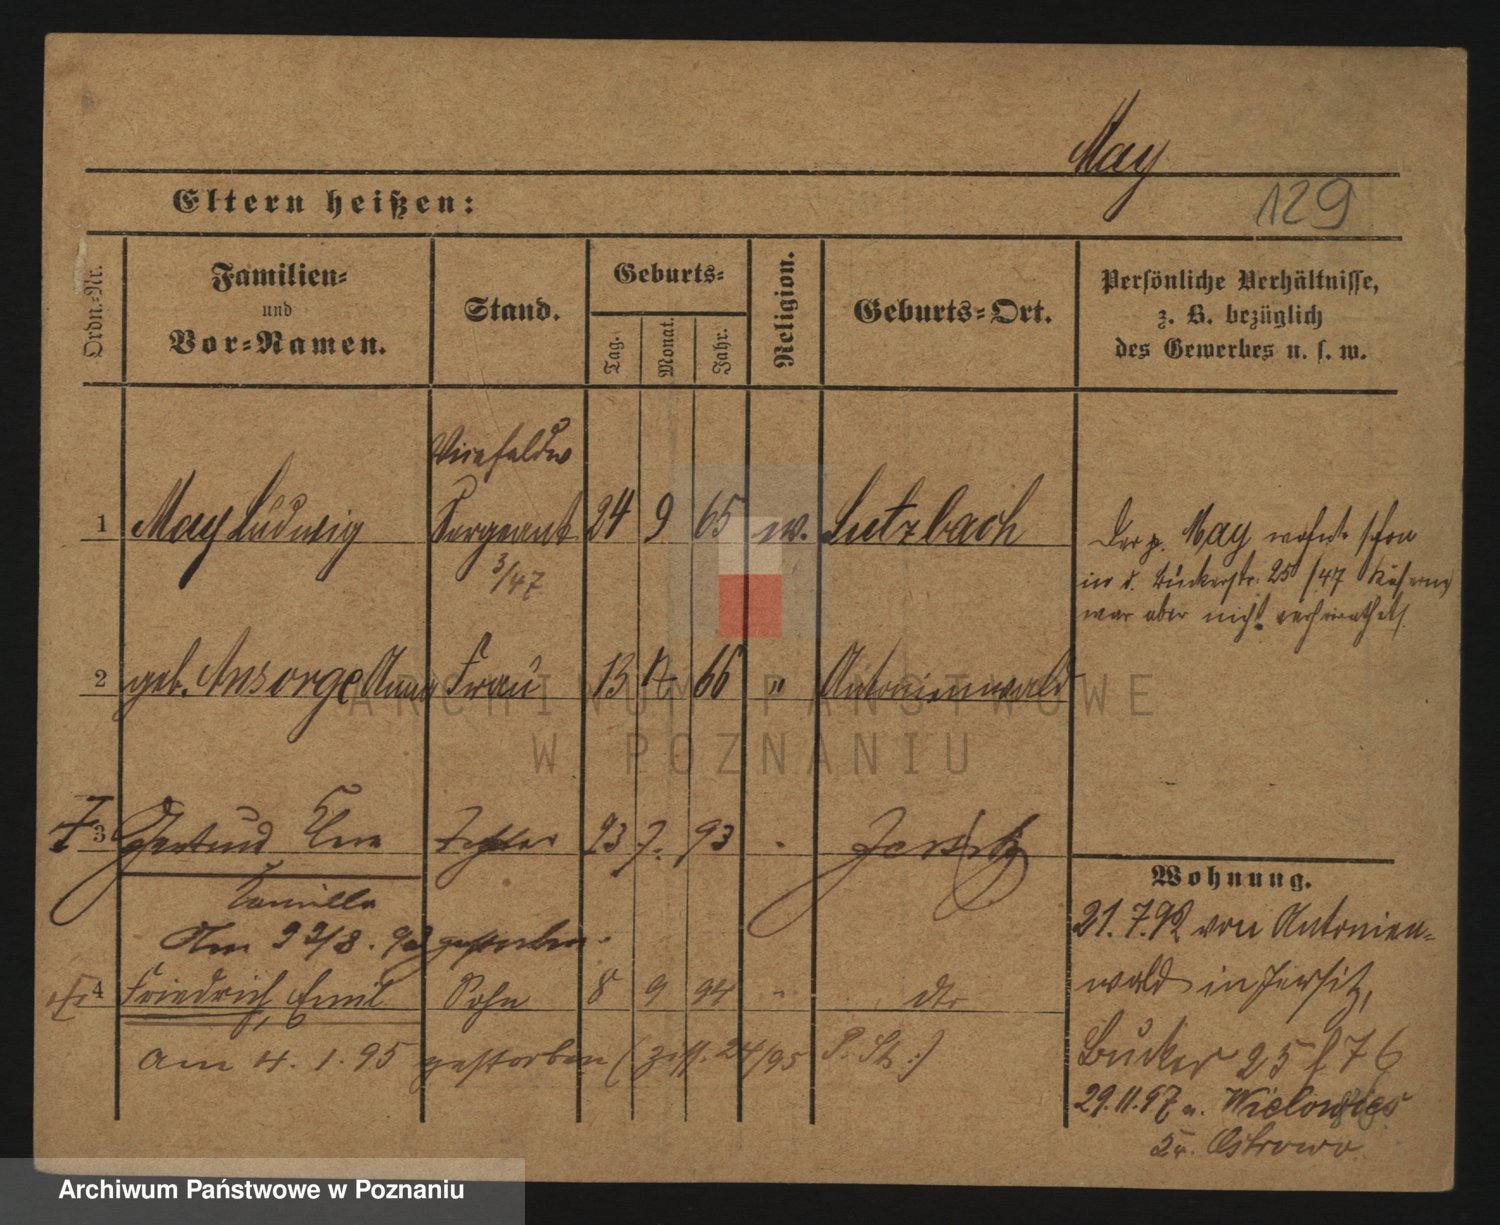 May
129
Eltern heißen:
Ordn.=Nr.
Familien=
und
Vor=Namen.
Stand.
Geburts=
Tag.
Monat.
Jahr.
Religion.
Geburts=Ort.
Persönliche Verhältnisse,
z. B. bezüglich
des Gewerbes u. s. w.
1 May Ludwig Sergeant 24 9 65 ev. Lutzbach
3/47
Der p. May wohnte schon
in d. 25/47 Kaserne
war aber nicht verheirathet.
2 geb. Ansorge Anna Frau 13 66 " Antonienwald
3 Gertrud Tochter 23 7. 93 " Jersitz
Camilla
Am 22/8. 93 gestorben.
4 Friedrich, Emil Sohn 8 9 94 " dto
am 4. 1. 95 gestorben ( 24/95 P. St.)
Wohnung.
21. 7. 92 von Antonien=
wald in Jersitz,
Buker 25 f 76
29. 11. 97 n. Wielowies
Kr. Ostrowo
ARCHIWUM PAŃSTWOWE
W POZNANIU
Archiwum Państwowe w Poznaniu